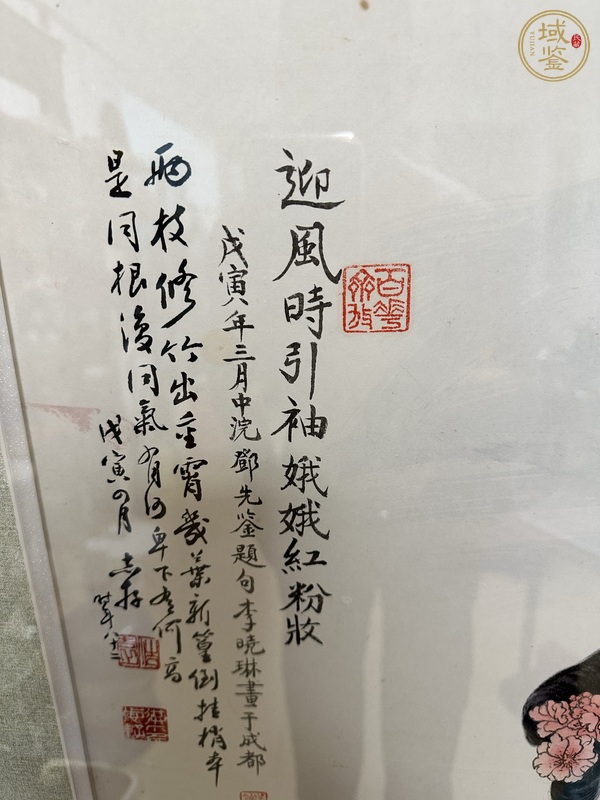 域鉴
YUJIAN
百花齊放
迎風時引袖娥娥紅粉妝
戊寅年三月中浣鄧先鉴題句李曉琳畫于成都
兩枝修竹出重霄幾葉新篁倒挂梢本
是同根復同氣有何卑下有何高
戊寅四月
時年八十二